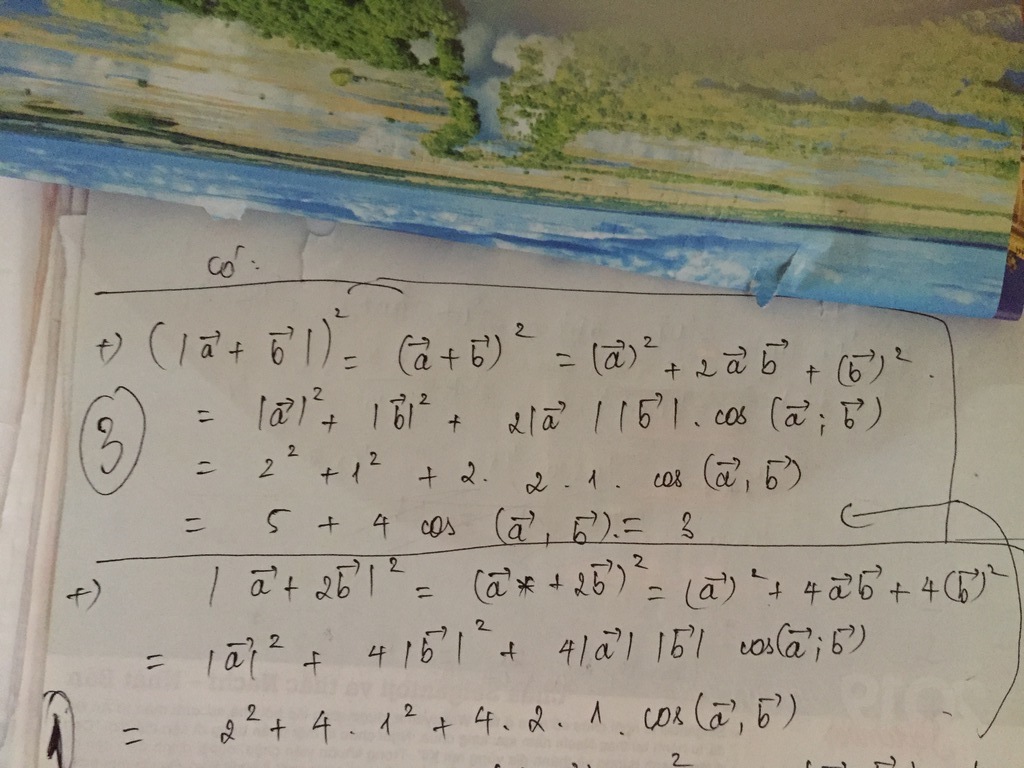 có:
+) (|a⃗ + b⃗|)² = (a⃗ + b⃗)² = (a⃗)² + 2a⃗ b⃗ + (b⃗)².
③ = |a⃗|² + |b⃗|² + 2|a⃗||b⃗|. cos (a⃗; b⃗)
= 2² + 1² + 2. 2 . 1. cos (a⃗, b⃗)
= 5 + 4 cos (a⃗, b⃗) = 3
+) |a⃗ + 2b⃗|² = (a⃗* + 2b⃗)² = (a⃗)² + 4a⃗b⃗ + 4(b⃗)²
= |a⃗|² + 4|b⃗|² + 4|a⃗| |b⃗| cos(a⃗; b⃗)
① = 2² + 4 . 1² + 4 . 2 . 1 . cos(a⃗, b⃗)